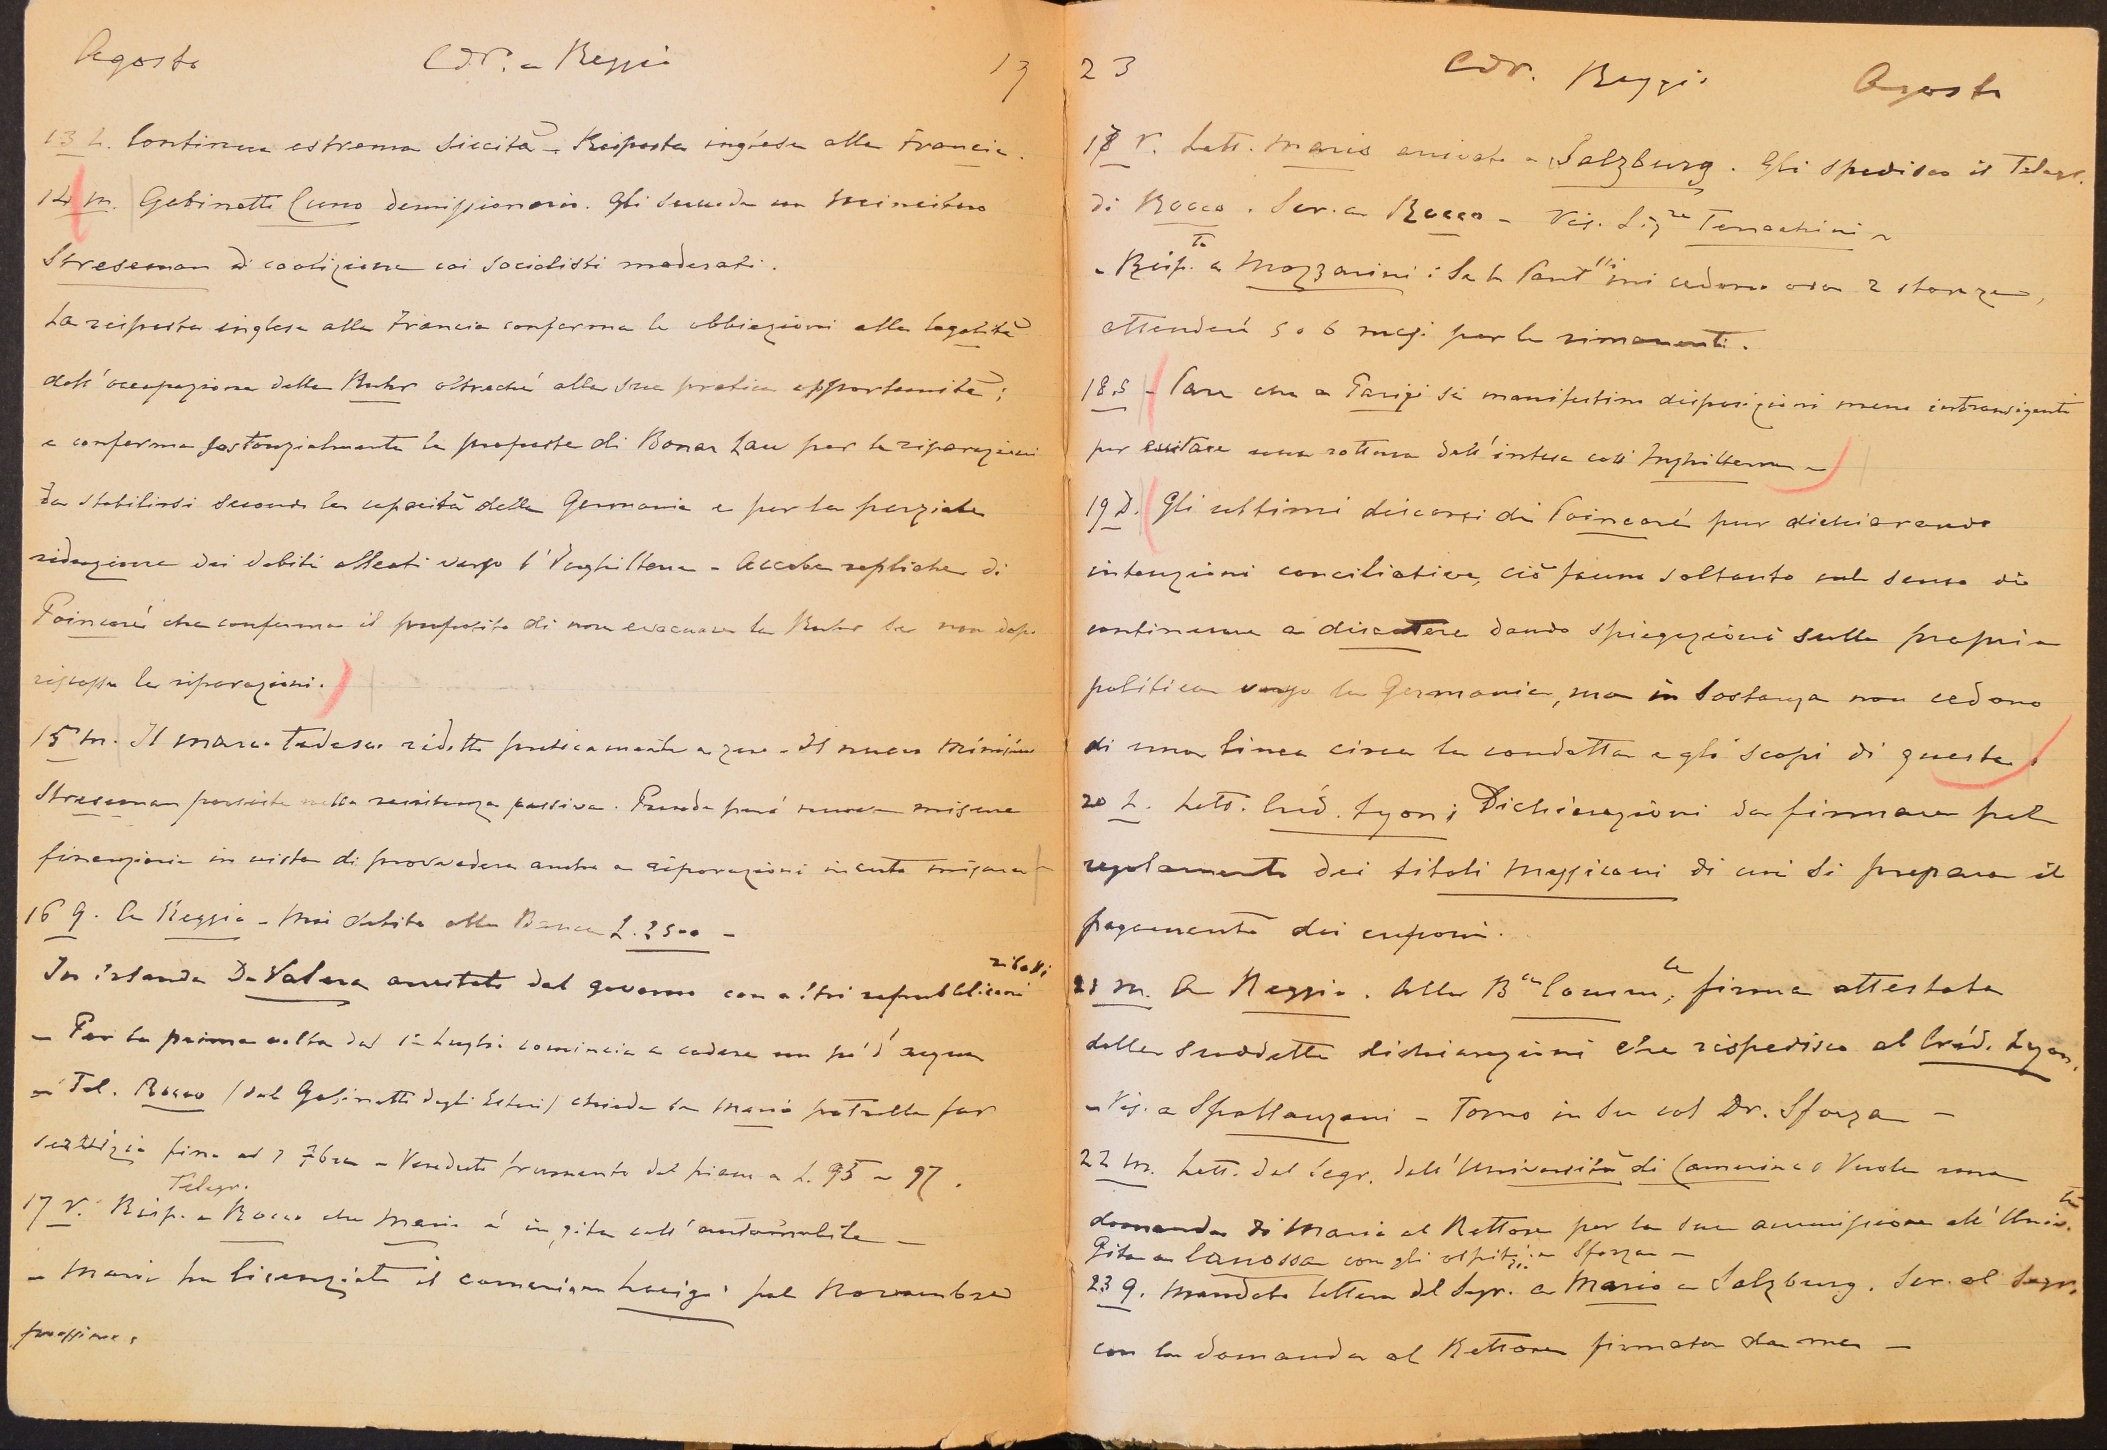 Agosto Cdr. a Reggio 19
13 L. Continua estrema siccità - Risposta inglese alla Francia.
14 m. Gabinetto Cuno demissionario. Gli succede un Ministero
Streseman di coalizione coi socialisti moderati.
La risposta inglese alla Francia conferma le obbiezioni alla legalità
dell'occupazione della Ruhr oltreché alla sua pratica opportunità;
e conferma sostanzialmente le proposte di Bonar Law per le riparazioni
da stabilirsi secondo la capacità della Germania e per la parziale
riduzione dei debiti alleati verso l'Inghilterra - Accuse repliche di
Poincaré che conferma il proposito di non evacuare la Ruhr se non dopo
riscosse le riparazioni.
15 m. Il marco tedesco ridotto praticamente a zero - Il nuovo Ministro
Streseman persiste nella resistenza passiva. Prende però nuove misure
finanziarie in vista di provvedere anche a riparazioni in certa misura -
16 g. A Reggio - Mio debito alla Banca L. 2500 -
In Irlanda De Valera arrestato dal governo con altri repubblicani ribelli
- Per la prima volta dal 1° Luglio comincia a cadere un po' d'acqua
- Tel. Rocco (dal Gabinetto degli Esteri) chiede se Mario potrebbe far
servizio fino al 7 7bre - Venduto frumento del piano a L. 95 - 97.
17 v. Risp. Telegr. a Rocco che Mario è in gita coll'automobile -
- Mario ha licenziato il cameriere Luigi pel Novembre
prossimo.
23 Cdr. Reggio Agosto
17 v. Lett. Mario arrivato a Salzburg. Gli spedisco il Telegr.
di Rocco. Scr. a Rocco - Vis. Sig.re Terrachini -
- Risp.to a Mazzarini: Se le Cant.lli mi cedono ora 2 stanze,
attenderò 5 o 6 mesi per le rimanenti.
18 S - Pare che a Parigi si manifestino disposizioni meno intransigenti
per evitare una rottura dell'intesa coll'Inghilterra -
19 D. Gli ultimi discorsi di Poincaré pur dichiarando
intenzioni conciliative, ciò fanno soltanto nel senso di
continuare a discutere dando spiegazioni sulla propria
politica verso la Germania, ma in sostanza non cedono
di una linea circa la condotta e gli scopi di questa.
20 L. Lett. Créd. Lyon; Dichiarazioni da firmare pel
regolamento dei titoli messicani di cui si prepara il
pagamento dei cuponi.
21 m. A Reggio. Alla B.ca Comm.le firma attestata
delle suddette dichiarazioni che rispedisco al Créd. Lyon.
- Vis. a Spallanzani - Torno in su col Dr. Sforza -
22 m. Lett. del Segr. dell'Università di Camerino Vuole una
domanda di Mario al Rettore per la sua ammissione all'Univ.tà
Gita a Canossa con gli ospiti e Sforza -
23 g. Mandata lettera del Segr. a Mario a Salzburg. Scr. al Segr.
con la domanda al Rettore firmata da me -